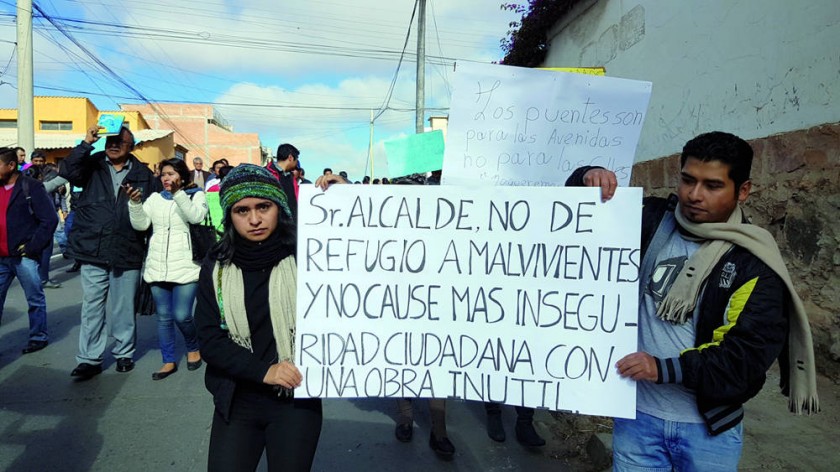 Los puentes son
para las Avenidas
no para las calles
Sr. ALCALDE, NO DE
REFUGIO A MALVIVIENTES
Y NO CAUSE MAS INSEGU-
RIDAD CIUDADANA CON
UNA OBRA INUTIL.